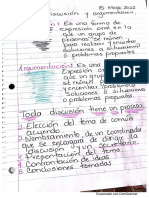 Discusión y argumentación
15 Marzo 2022
Es una forma de
expresión oral en la
que un grupo de
personas se reúnen
para realizar y encontrar
soluciones a situaciones
o problemas propuestos
Argumentación: Es una
Expresión
oral en la
que un grupo
y encontrar
soluciones a situaciones
o problemas propuestos
Toda discusión tiene un proceso:
1. Elección del tema de común
acuerdo.
2. Nombramiento, de un coordinador
que se encargara de dirigir la
discusión y de un Secretario
3. Presentación del tema
4. Confrontación de ideas
5. Conclusiones tomadas
Escaneado con CamScanner